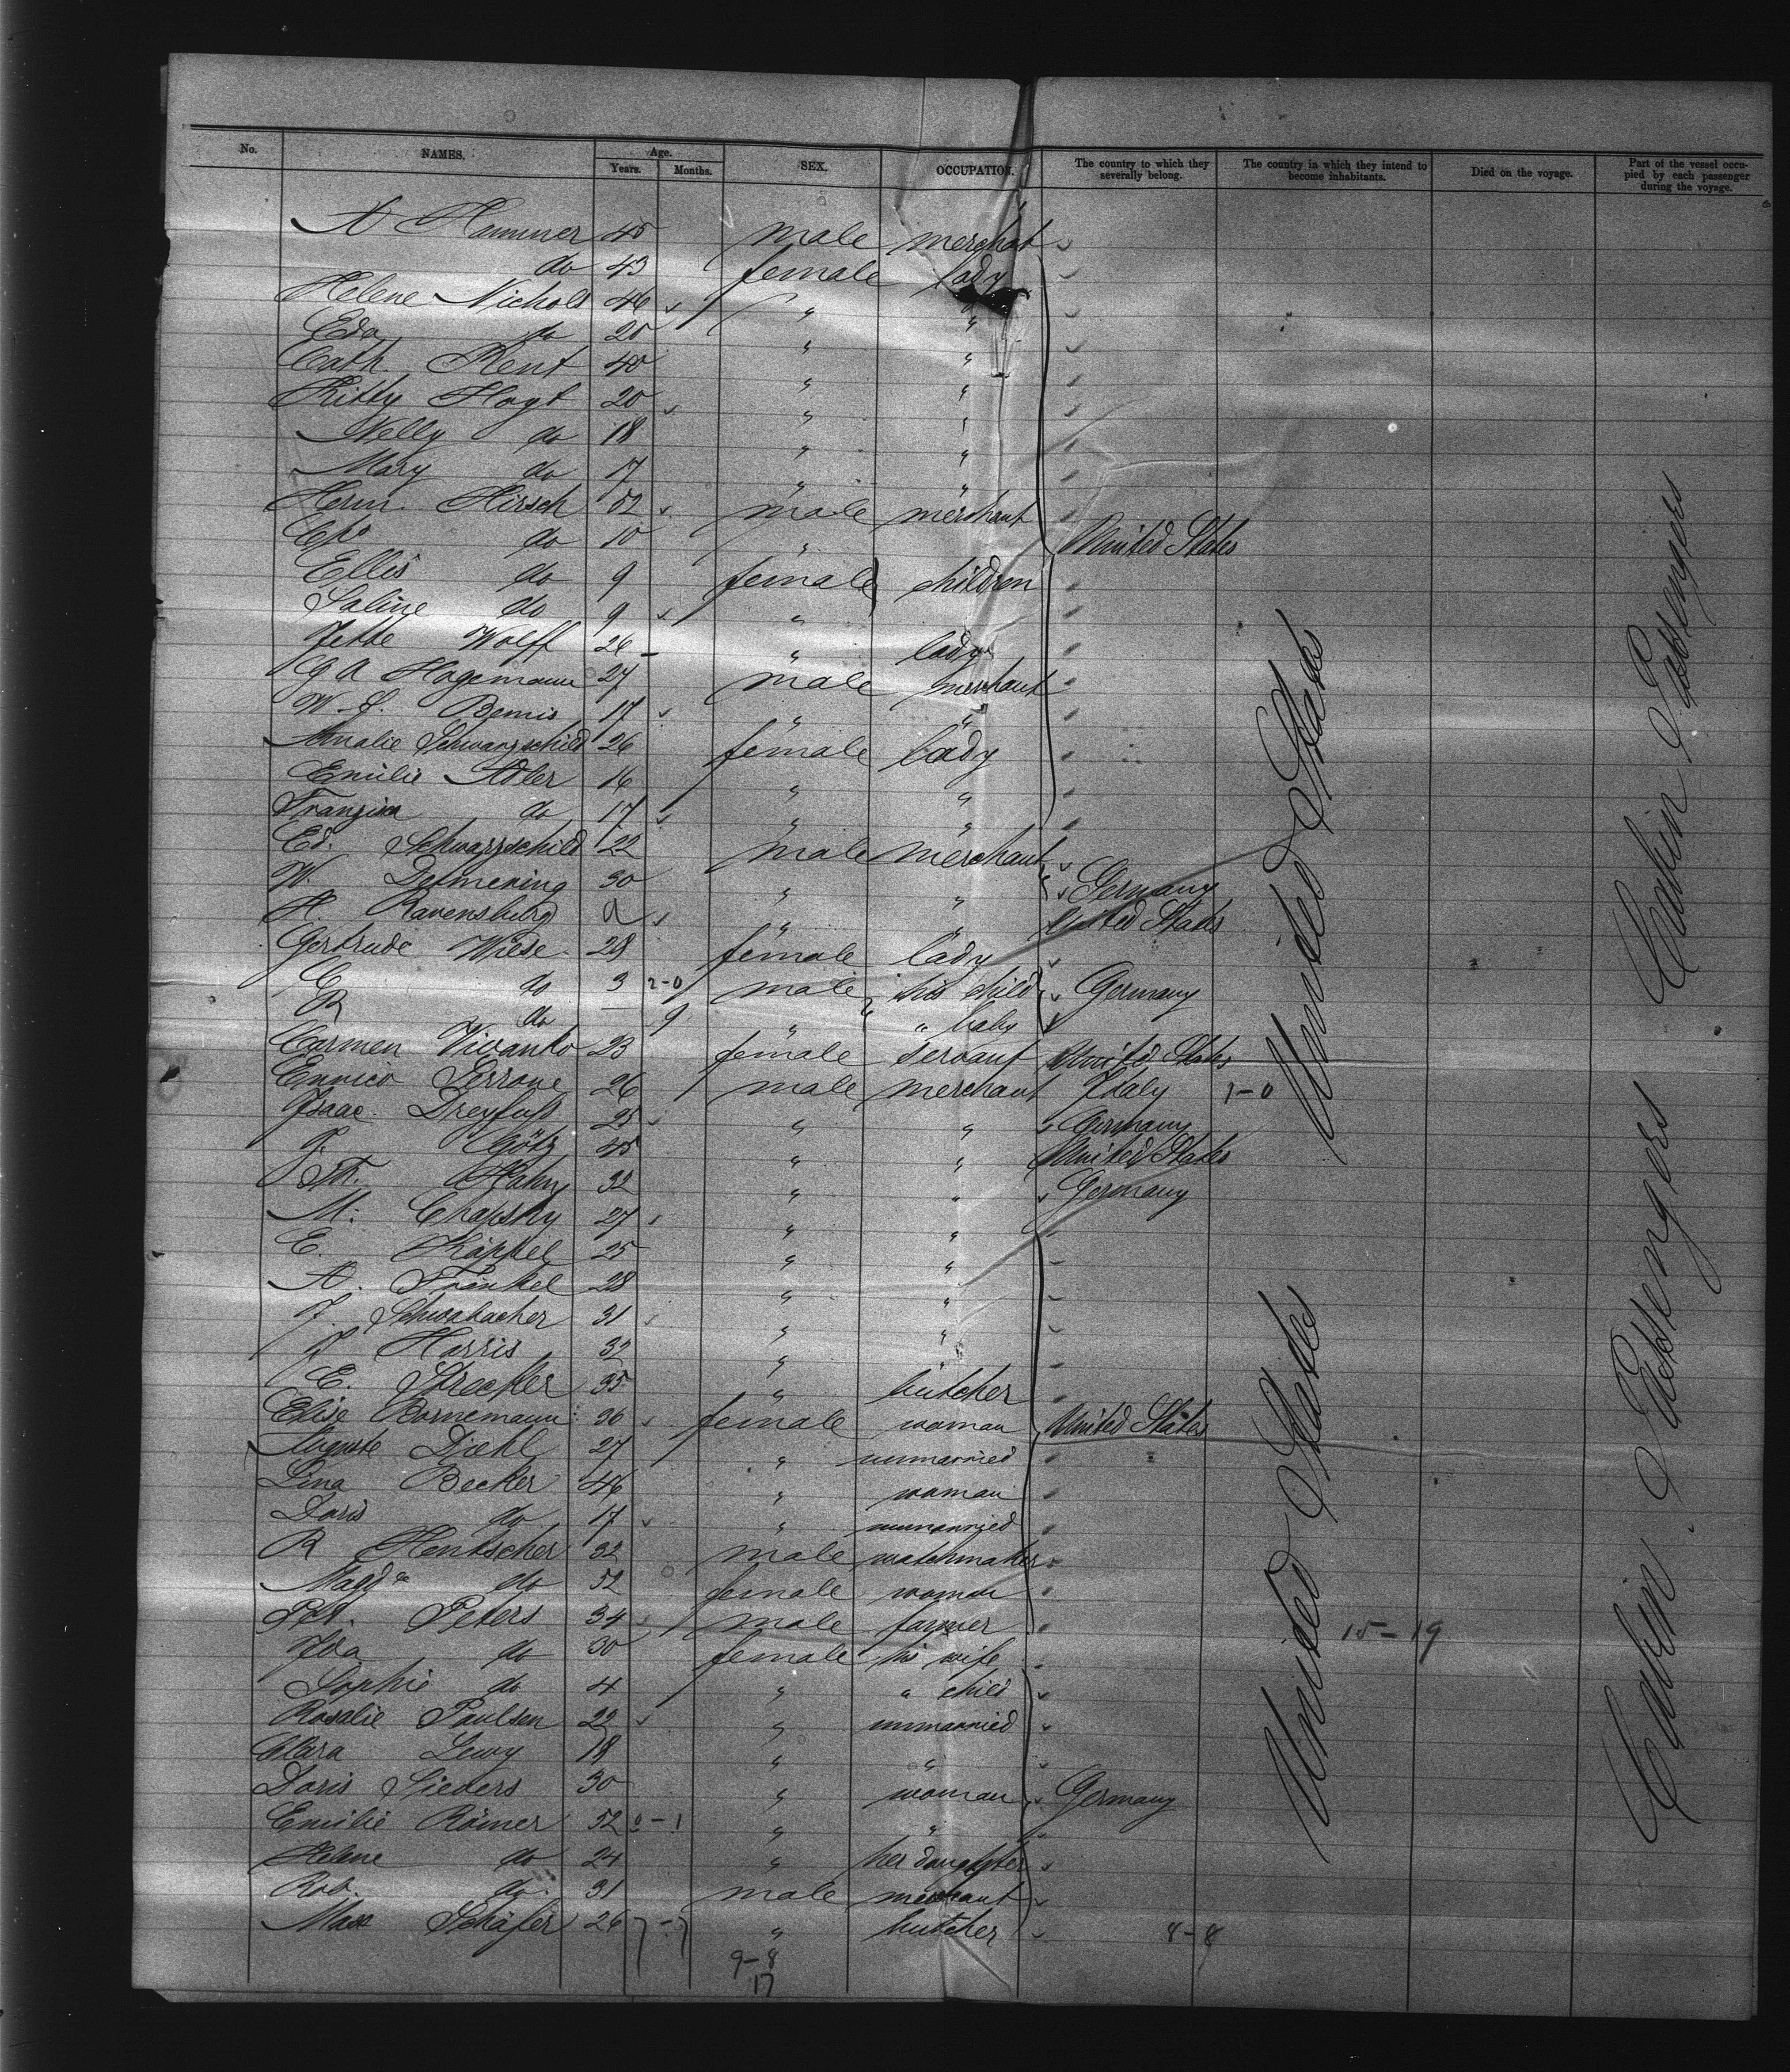 No. NAMES. Age. Years. Months. SEX. OCCUPATION. The country to which they severally belong. The country in which they intend to become inhabitants. Died on the voyage. Part of the vessel occupied by each passenger during the voyage.
A Hammer 45 male merchant
do 43 female lady
Helene Nichols 46 " "
Eda do 20 " "
Cath. Kent 40 " "
Kitty Hoyt 20 " "
Nelly do 18 " "
Mary do 17 " "
Herm. Hirsch 52 male merchant
do 10 " United States
Ellis do 9 female children
Saline do 9 "
Jette Wolff 26 " lady
G A Hagemann 27 male merchant
W. S. Bemis 17 " "
Amalie Schwarzschild 26 female lady
Emilie Adler 16 " "
Franziska do 17 " "
Ed. Schwarzschild 22 male merchant
W. Delmening 30 " " Germany
H. Ravensburg " " United States
Gertrude Wiese 28 female lady
C do 3 2-0 male his child Germany
R do — 9 " " baby
Carmen Vivanko 23 female servant United States
Enrico Perrone 26 male merchant Italy 1-0
Isaac Dreyfuß 25 " " Germany
J. Götz 45 " " United States
St. Hahn 32 " " Germany
M. Chapsky 27 " "
E. Käppel 25 " "
A. Fränkel 28 " "
J. Schwabacher 31 " "
J Harris 32 "
E. Strecker 35 " butcher
Elise Bornemann 36 female woman United States
Auguste Diehl 27 " unmarried
Lina Becker 46 " woman
Doris do 17 " unmarried
R Hentscher 32 male watchmaker
Magda do 52 female woman
Pet. Peters 34 male farmer 15-19
Ida do 30 female his wife
Sophie do 4 " " child
Rosalie Paulsen 22 " unmarried
Clara Lewy 18 " "
Doris Sievers 30 " woman Germany
Emilie Römer 52 0-1 " "
Helene do 24 " her daughter
Rob. do 31 male merchant
Max Schäfer 26 7-7 " butcher 8-8
9-8
17
United States
United States
Cabin Passengers
Cabin Passengers